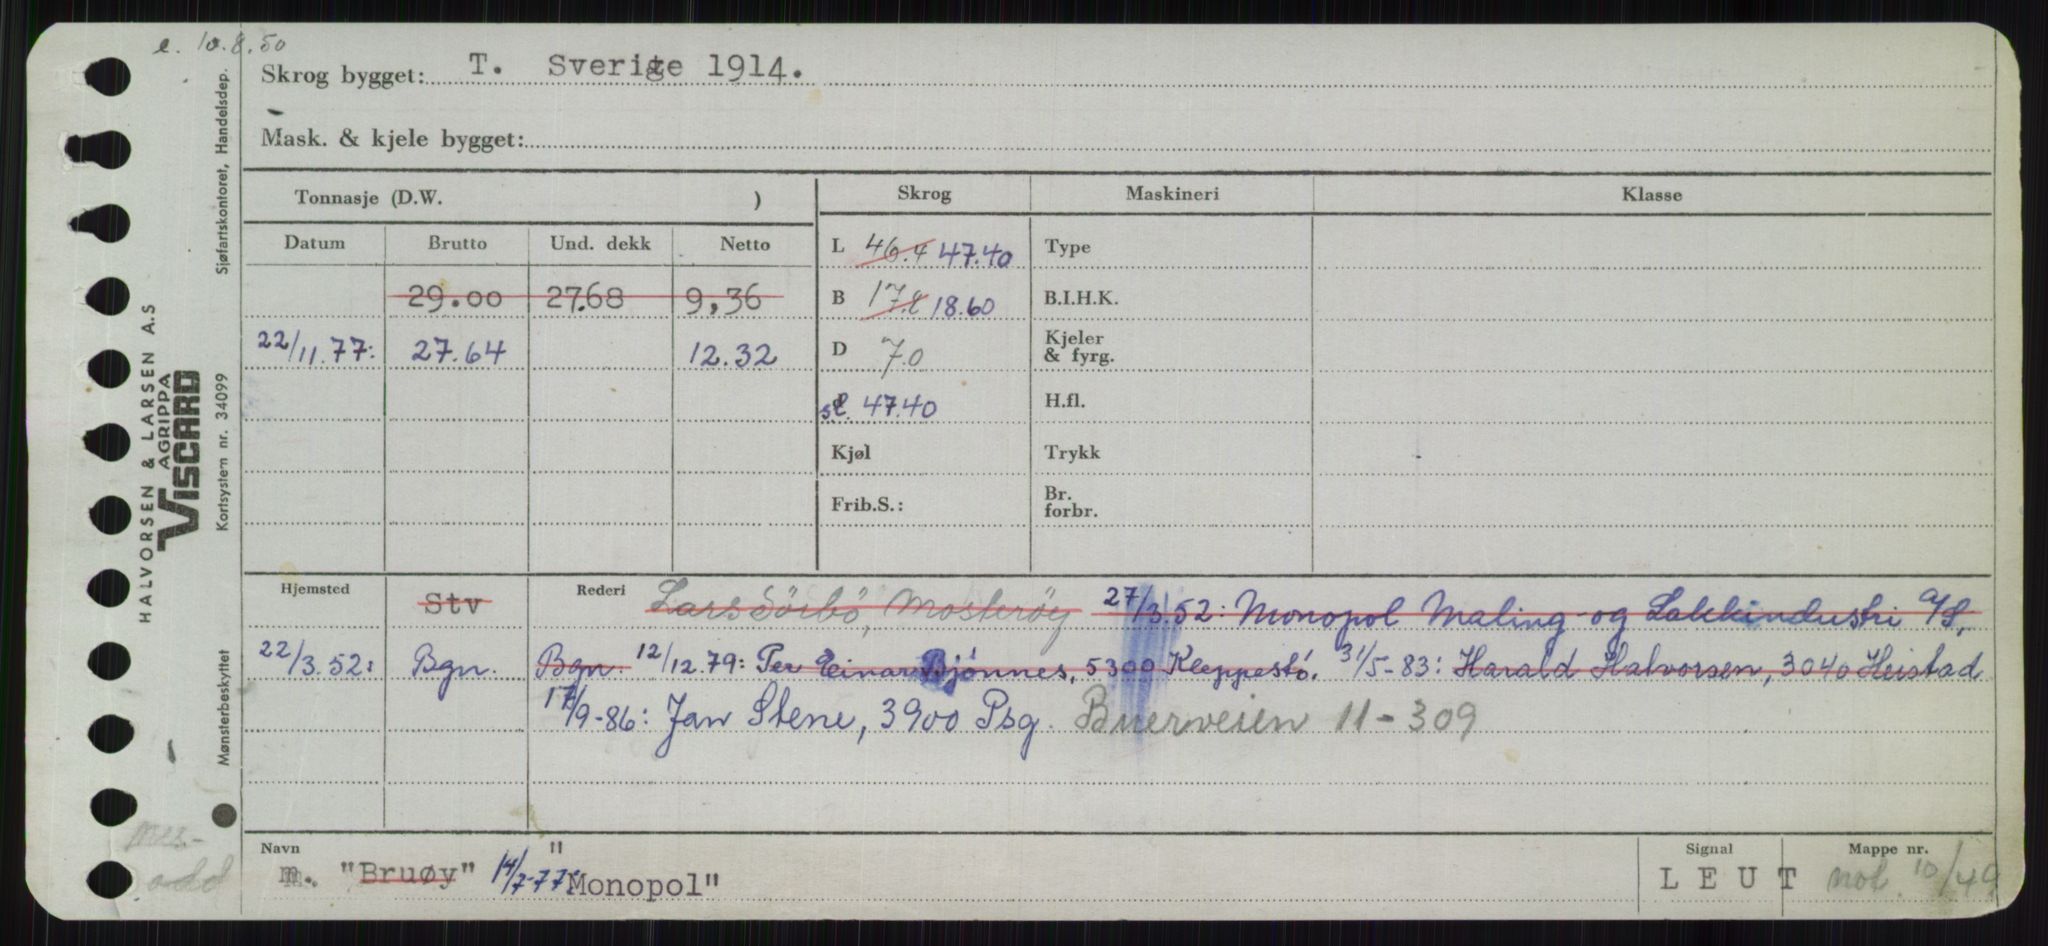 e. 10.8.50
Skrog bygget: T. Sverige 1914.
Mask. & kjele bygget:
Tonnasje (D.W. )
Skrog Maskineri Klasse
Datum Brutto Und. dekk Netto
L 46.4 47.40 Type
29.00 27.68 9,36
B 17.8 18.60 B.I.H.K.
22/11.77: 27.64 12.32
D 7.0 Kjeler & fyrg.
sl. 47.40 H.fl.
Kjøl Trykk
Frib.S.: Br. forbr.
Hjemsted Stv Rederi Lars Sörbö, Mosteröy 27/3.52: Monopol Maling- og Lakkindustri A/S,
22/3.52: Bgn. Bgn. 12/12.79: Per Einar Bjönnes, 5300 Kleppestö. 31/5-83: Harald Halvorsen, 3040 Heistad
17/9-86: Jan Stene, 3900 Psg. Buerveien 11-309
Navn m. "Bruøy" 14/7-77: "Monopol"
Signal LEUT
Mappe nr. not. 10/49
HALVORSEN & LARSEN A.S
AGRIPPA
VISCARD
Sjøfartskontoret, Handelsdep.
Kortsystem nr. 34099
Mønsterbeskyttet